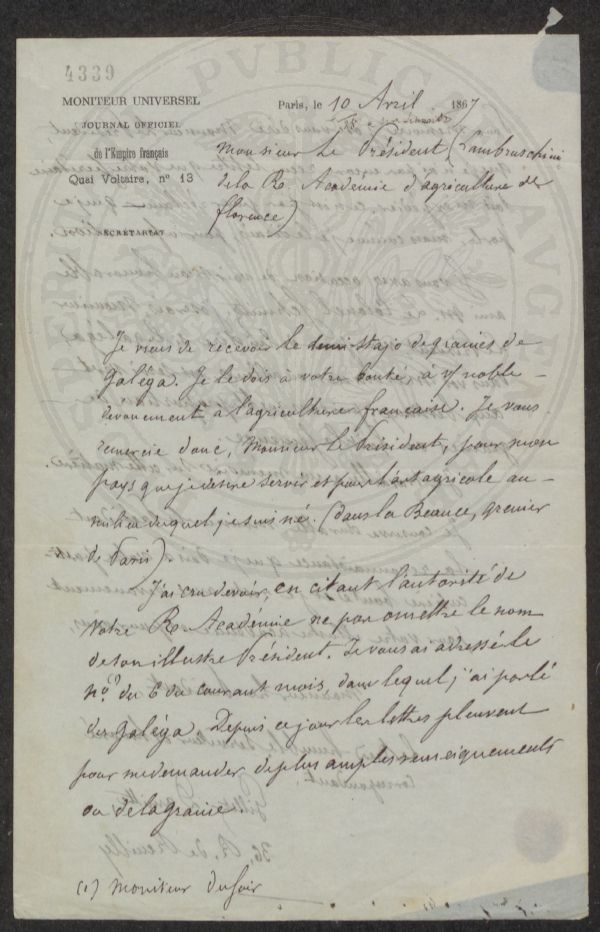 4339
MONITEUR UNIVERSEL
JOURNAL OFFICIEL
de l'Empire français
Quai Voltaire, n° 13
SECRÉTARIAT
Paris, le 10 Avril 1867
Monsieur Le Président (Lambruschini
de la R. Académie d'agriculture de
florence)
Je viens de recevoir le demi-stajo de graines de
Galéga. Je le dois à votre bonté, à votre noble
devouement à l'agriculture française. Je vous
remercie donc, Monsieur le Président, pour mon
pays que je desire servir et pour l'art agricole au
milieu duquel je suis né. (dans la Beauce, grenier
de Paris).
J'ai cru devoir, en citant l'autorité de
votre R. Académie ne pas omettre le nom
de son illustre Président. Je vous ai adressé le
n° du 6 du courant mois, dans lequel j'ai parlé
du Galéga. Depuis ce jour les lettres pleuvent
pour me demander de plus amples renseignements
ou de la graine.
(1) Moniteur du soir